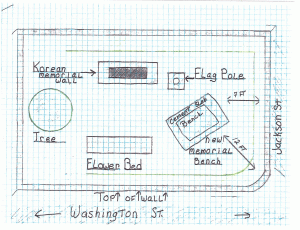 Korean
memorial
wall
Flag Pole
7 FT
Cement Slab
Bench
New
memorial
Bench
12 FT
Tree
Flower Bed
Jackson St.
Top of wall
Washington St.